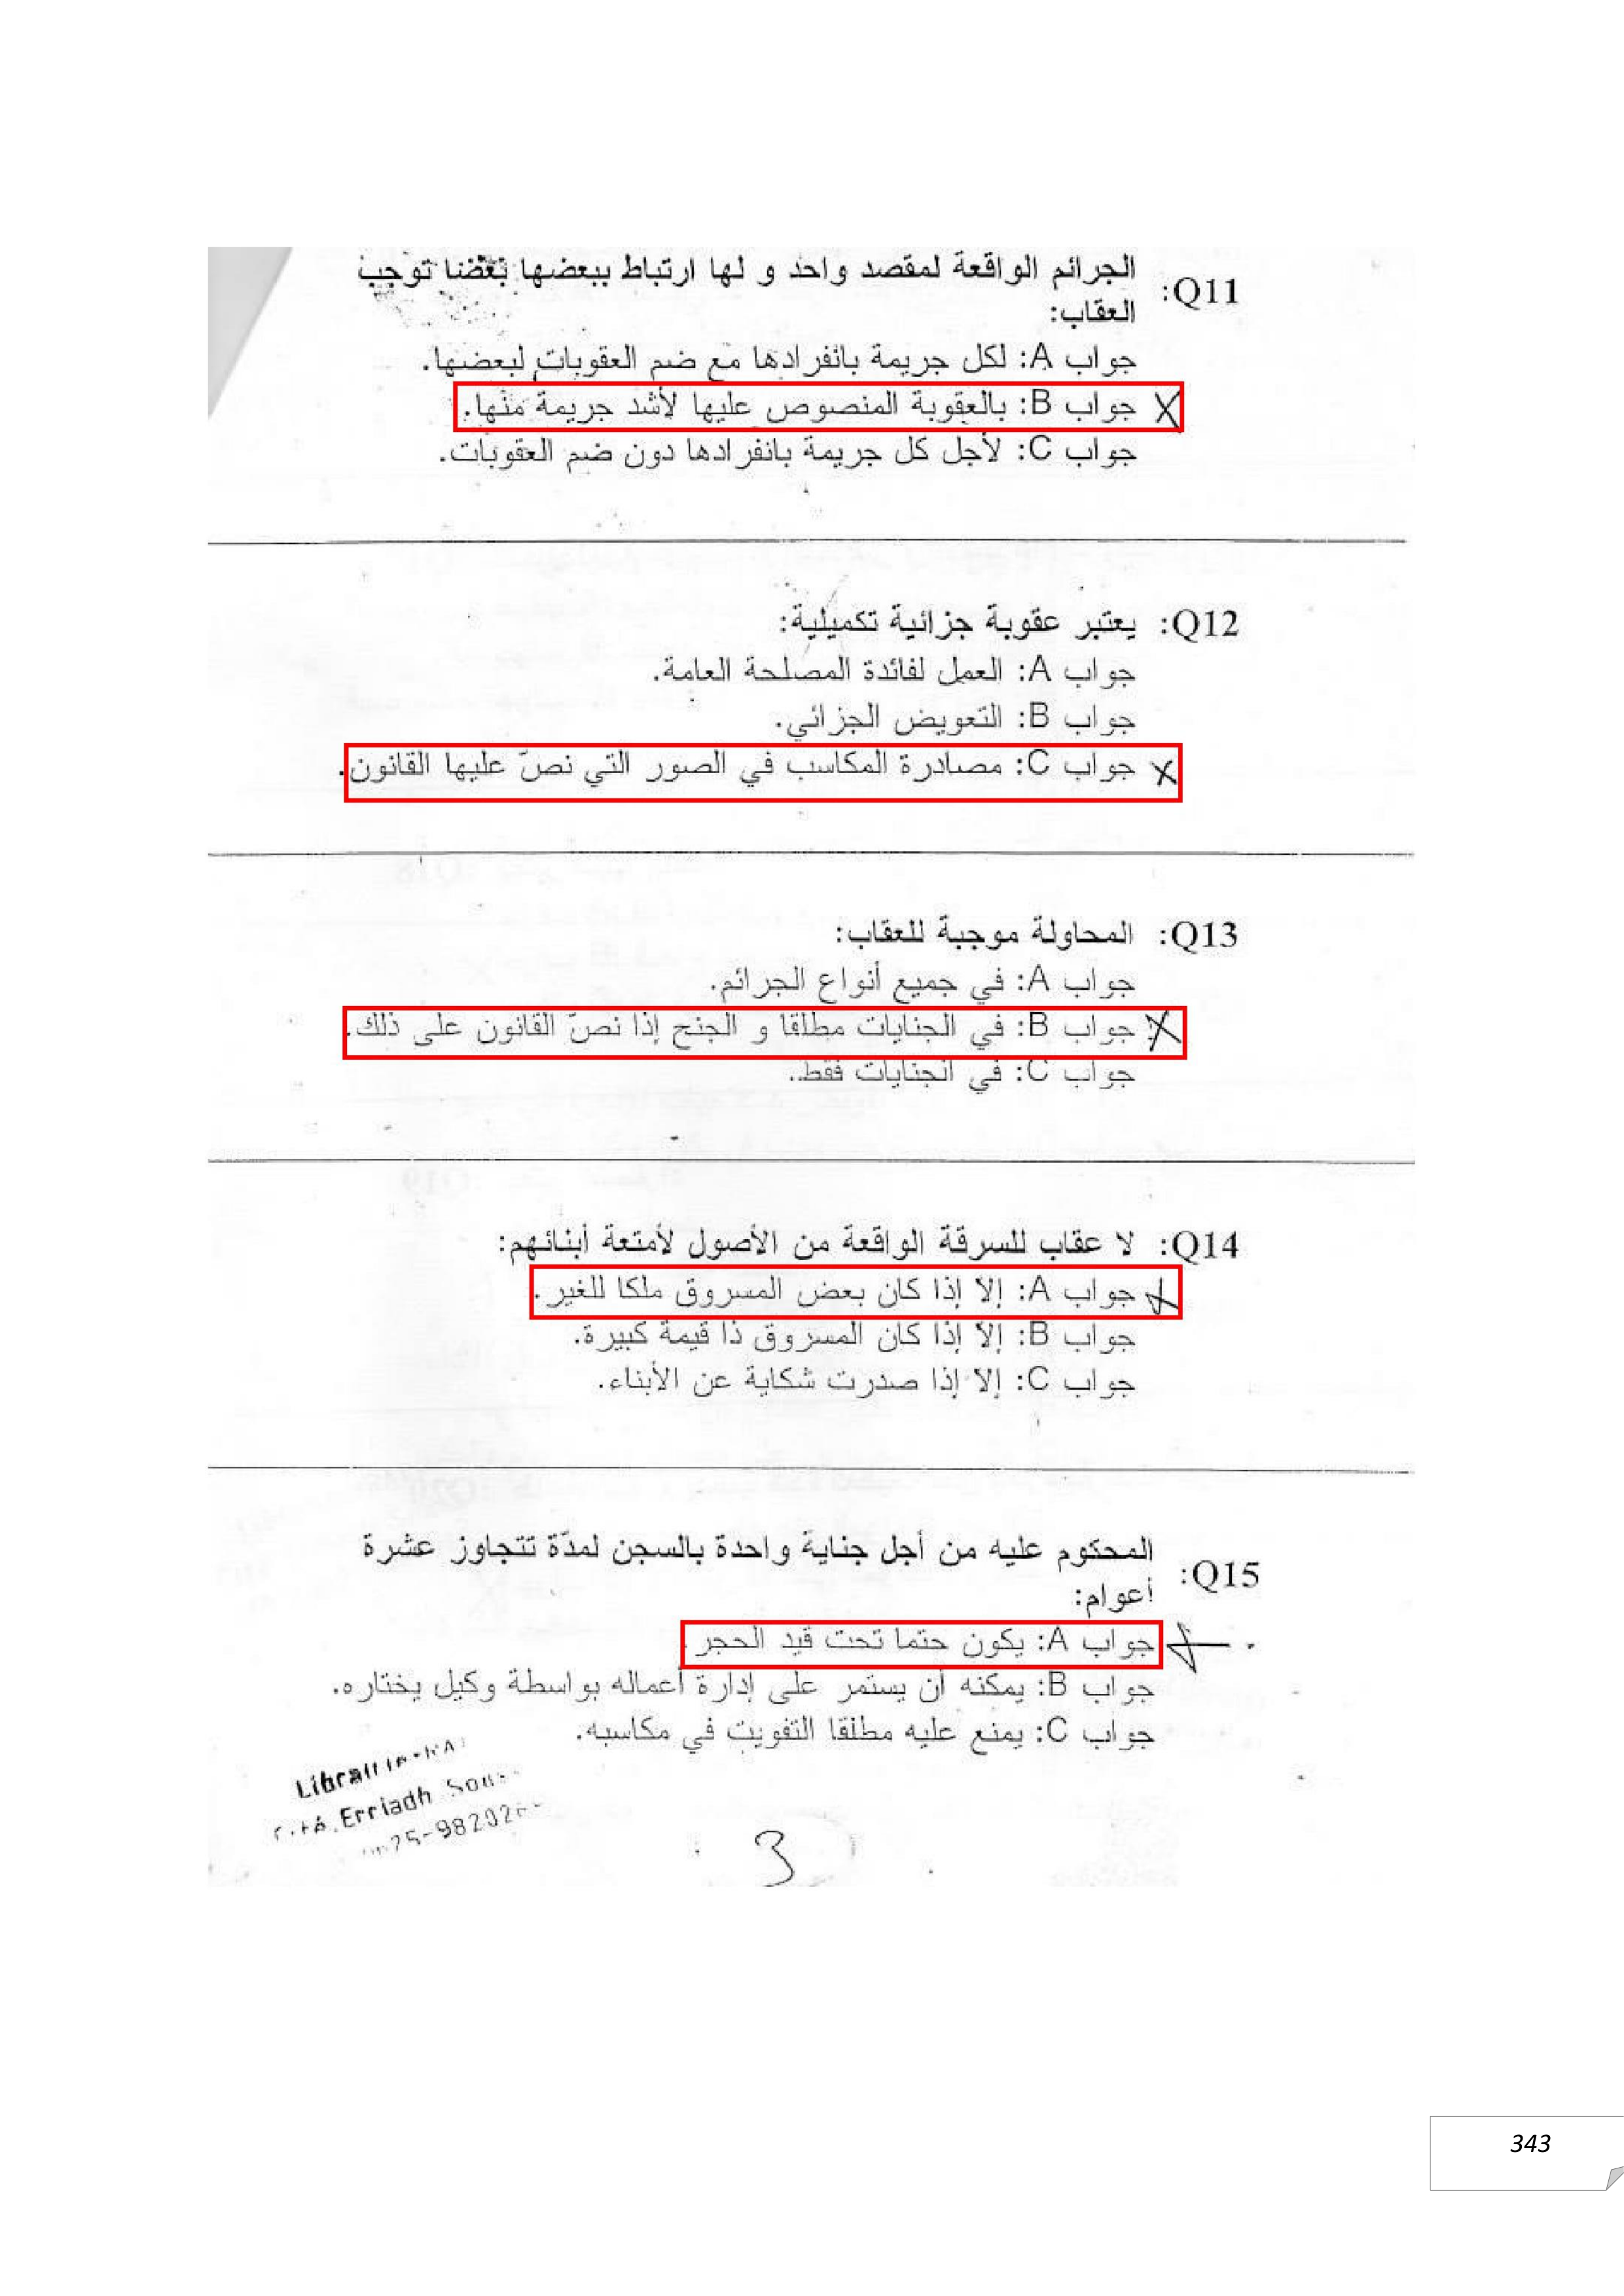 Q11: الجرائم الواقعة لمقصد واحد و لها ارتباط ببعضها بعضا توجب
العقاب:
جواب A: لكل جريمة بانفرادها مع ضم العقوبات لبعضها.
X جواب B: بالعقوبة المنصوص عليها لأشد جريمة منها.
جواب C: لأجل كل جريمة بانفرادها دون ضم العقوبات.
Q12: يعتبر عقوبة جزائية تكميلية:
جواب A: العمل لفائدة المصلحة العامة.
جواب B: التعويض الجزائي.
X جواب C: مصادرة المكاسب في الصور التي نصّ عليها القانون.
Q13: المحاولة موجبة للعقاب:
جواب A: في جميع أنواع الجرائم.
X جواب B: في الجنايات مطلقا و الجنح إذا نصّ القانون على ذلك.
جواب C: في الجنايات فقط..
Q14: لا عقاب للسرقة الواقعة من الأصول لأمتعة أبنائهم:
X جواب A: إلا إذا كان بعض المسروق ملكا للغير.
جواب B: إلا إذا كان المسروق ذا قيمة كبيرة.
جواب C: إلا إذا صدرت شكاية عن الأبناء.
Q15: المحكوم عليه من أجل جناية واحدة بالسجن لمدّة تتجاوز عشرة
أعوام:
X جواب A: يكون حتما تحت قيد الحجر.
جواب B: يمكنه أن يستمر على إدارة أعماله بواسطة وكيل يختاره.
جواب C: يمنع عليه مطلقا التفويت في مكاسبه.
Erriadh
3
343